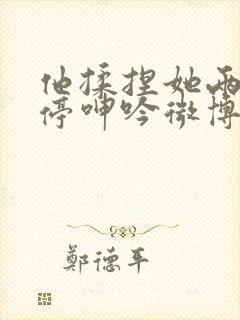 他揉捏她两
停呻吟微博
鄭德平